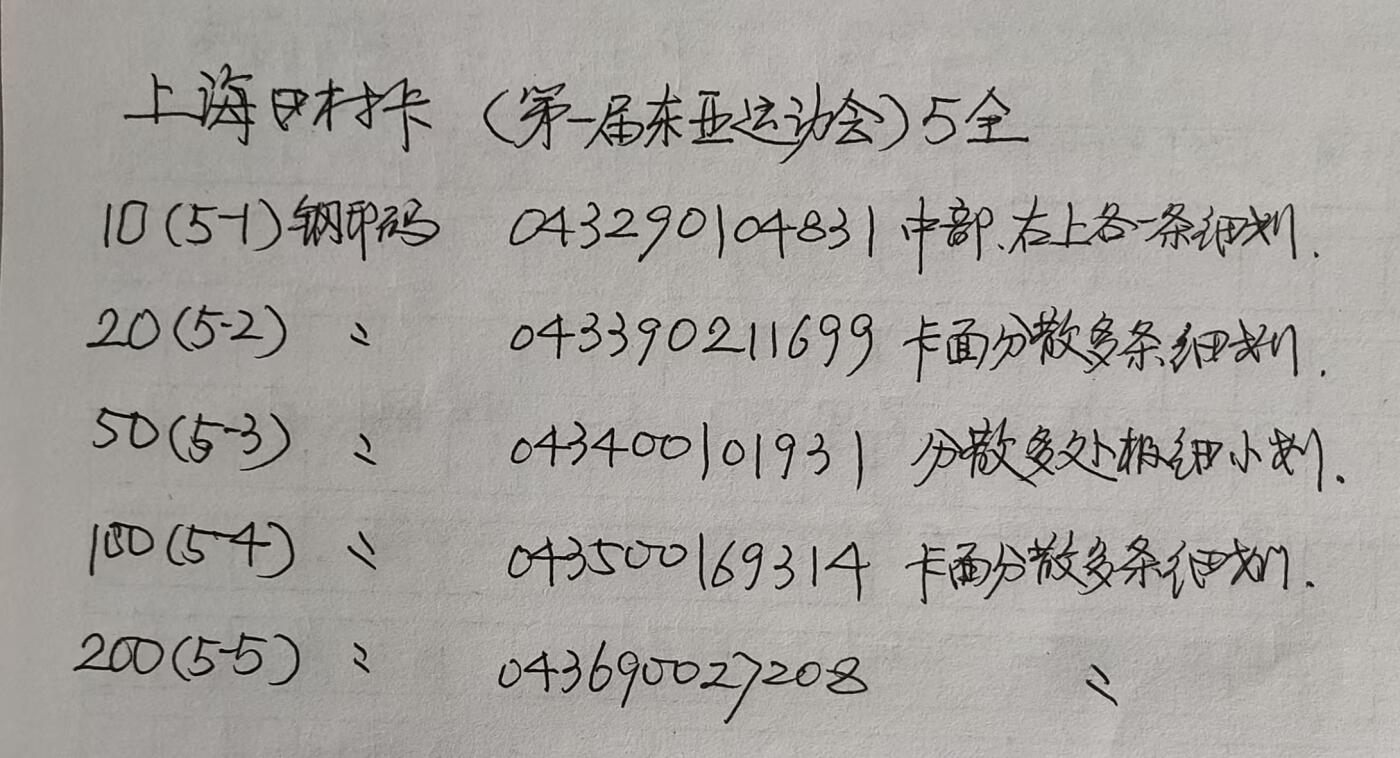 上海田村卡（第一届东亚运动会）5全
10(5-1)钢印码 043290104831 中部、右上各一条细划.
20(5-2) 〃 043390211699 卡面分散多条细划.
50(5-3) 〃 043400101931 分散多处极细小划.
100(5-4) 〃 043500169314 卡面分散多条细划.
200(5-5) 〃 043690027208 〃